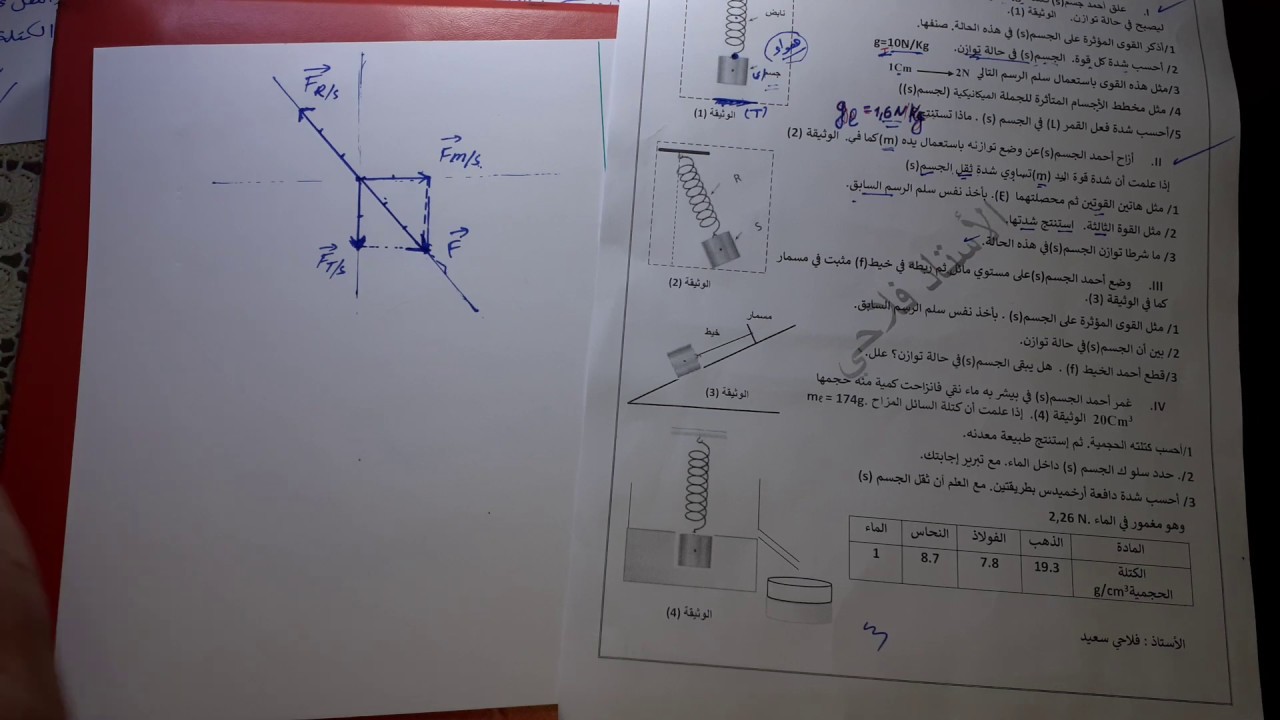 F R/s
F m/s
F T/s
F
الكتلة
I. علق أحمد جسم(s)
ليصبح في حالة توازن. الوثيقة (1).
1/أذكر القوى المؤثرة على الجسم(s) في هذه الحالة. صنفها.
2/ أحسب شدة كل قوة. الجسم(s) في حالة توازن. g=10N/Kg
3/مثل هذه القوى باستعمال سلم الرسم التالي 1Cm → 2N
4/ مثل مخطط الأجسام المتأثرة للجملة الميكانيكية (لجسم(s))
5/أحسب شدة فعل القمر (L) في الجسم (s) . ماذا تستنتج
gℓ = 1,6 N/Kg
نابض
هواء
جسم
(T)
الوثيقة (1)
II. أزاح أحمد الجسم(s)عن وضع توازنه باستعمال يده (m)كما في. الوثيقة (2)
إذا علمت أن شدة قوة اليد (m)تساوي شدة ثقل الجسم(s)
1/ مثل هاتين القوتين ثم محصلتهما (E). بأخذ نفس سلم الرسم السابق.
2/ مثل القوة الثالثة. إستنتج شدتها.
3/ ما شرطا توازن الجسم(s)في هذه الحالة.
R
S
الوثيقة (2)
III. وضع أحمد الجسم(s)على مستوي مائل ثم ربطه في خيط(f) مثبت في مسمار
كما في الوثيقة (3).
1/ مثل القوى المؤثرة على الجسم(s) . بأخذ نفس سلم الرسم السابق.
2/ بين أن الجسم(s)في حالة توازن.
3/قطع أحمد الخيط (f) . هل يبقى الجسم(s)في حالة توازن؟ علل.
مسمار
خيط
الوثيقة (3)
الأستاذ فلاحي
IV. غمر أحمد الجسم(s) في بيشر به ماء نقي فانزاحت كمية منه حجمها
20Cm³ الوثيقة (4). إذا علمت أن كتلة السائل المزاح .mℓ = 174g
1/أحصب كتلته الحجمية. ثم إستنتج طبيعة معدنه.
2/. حدد سلو ك الجسم (s) داخل الماء. مع تبرير إجابتك.
3/ أحسب شدة دافعة أرخميدس بطريقتين. مع العلم أن ثقل الجسم (s)
وهو مغمور في الماء .2,26 N
المادة الذهب الفولاذ النحاس الماء
الكتلة الحجمية g/cm³ 19.3 7.8 8.7 1
الوثيقة (4)
الأستاذ : فلاحي سعيد